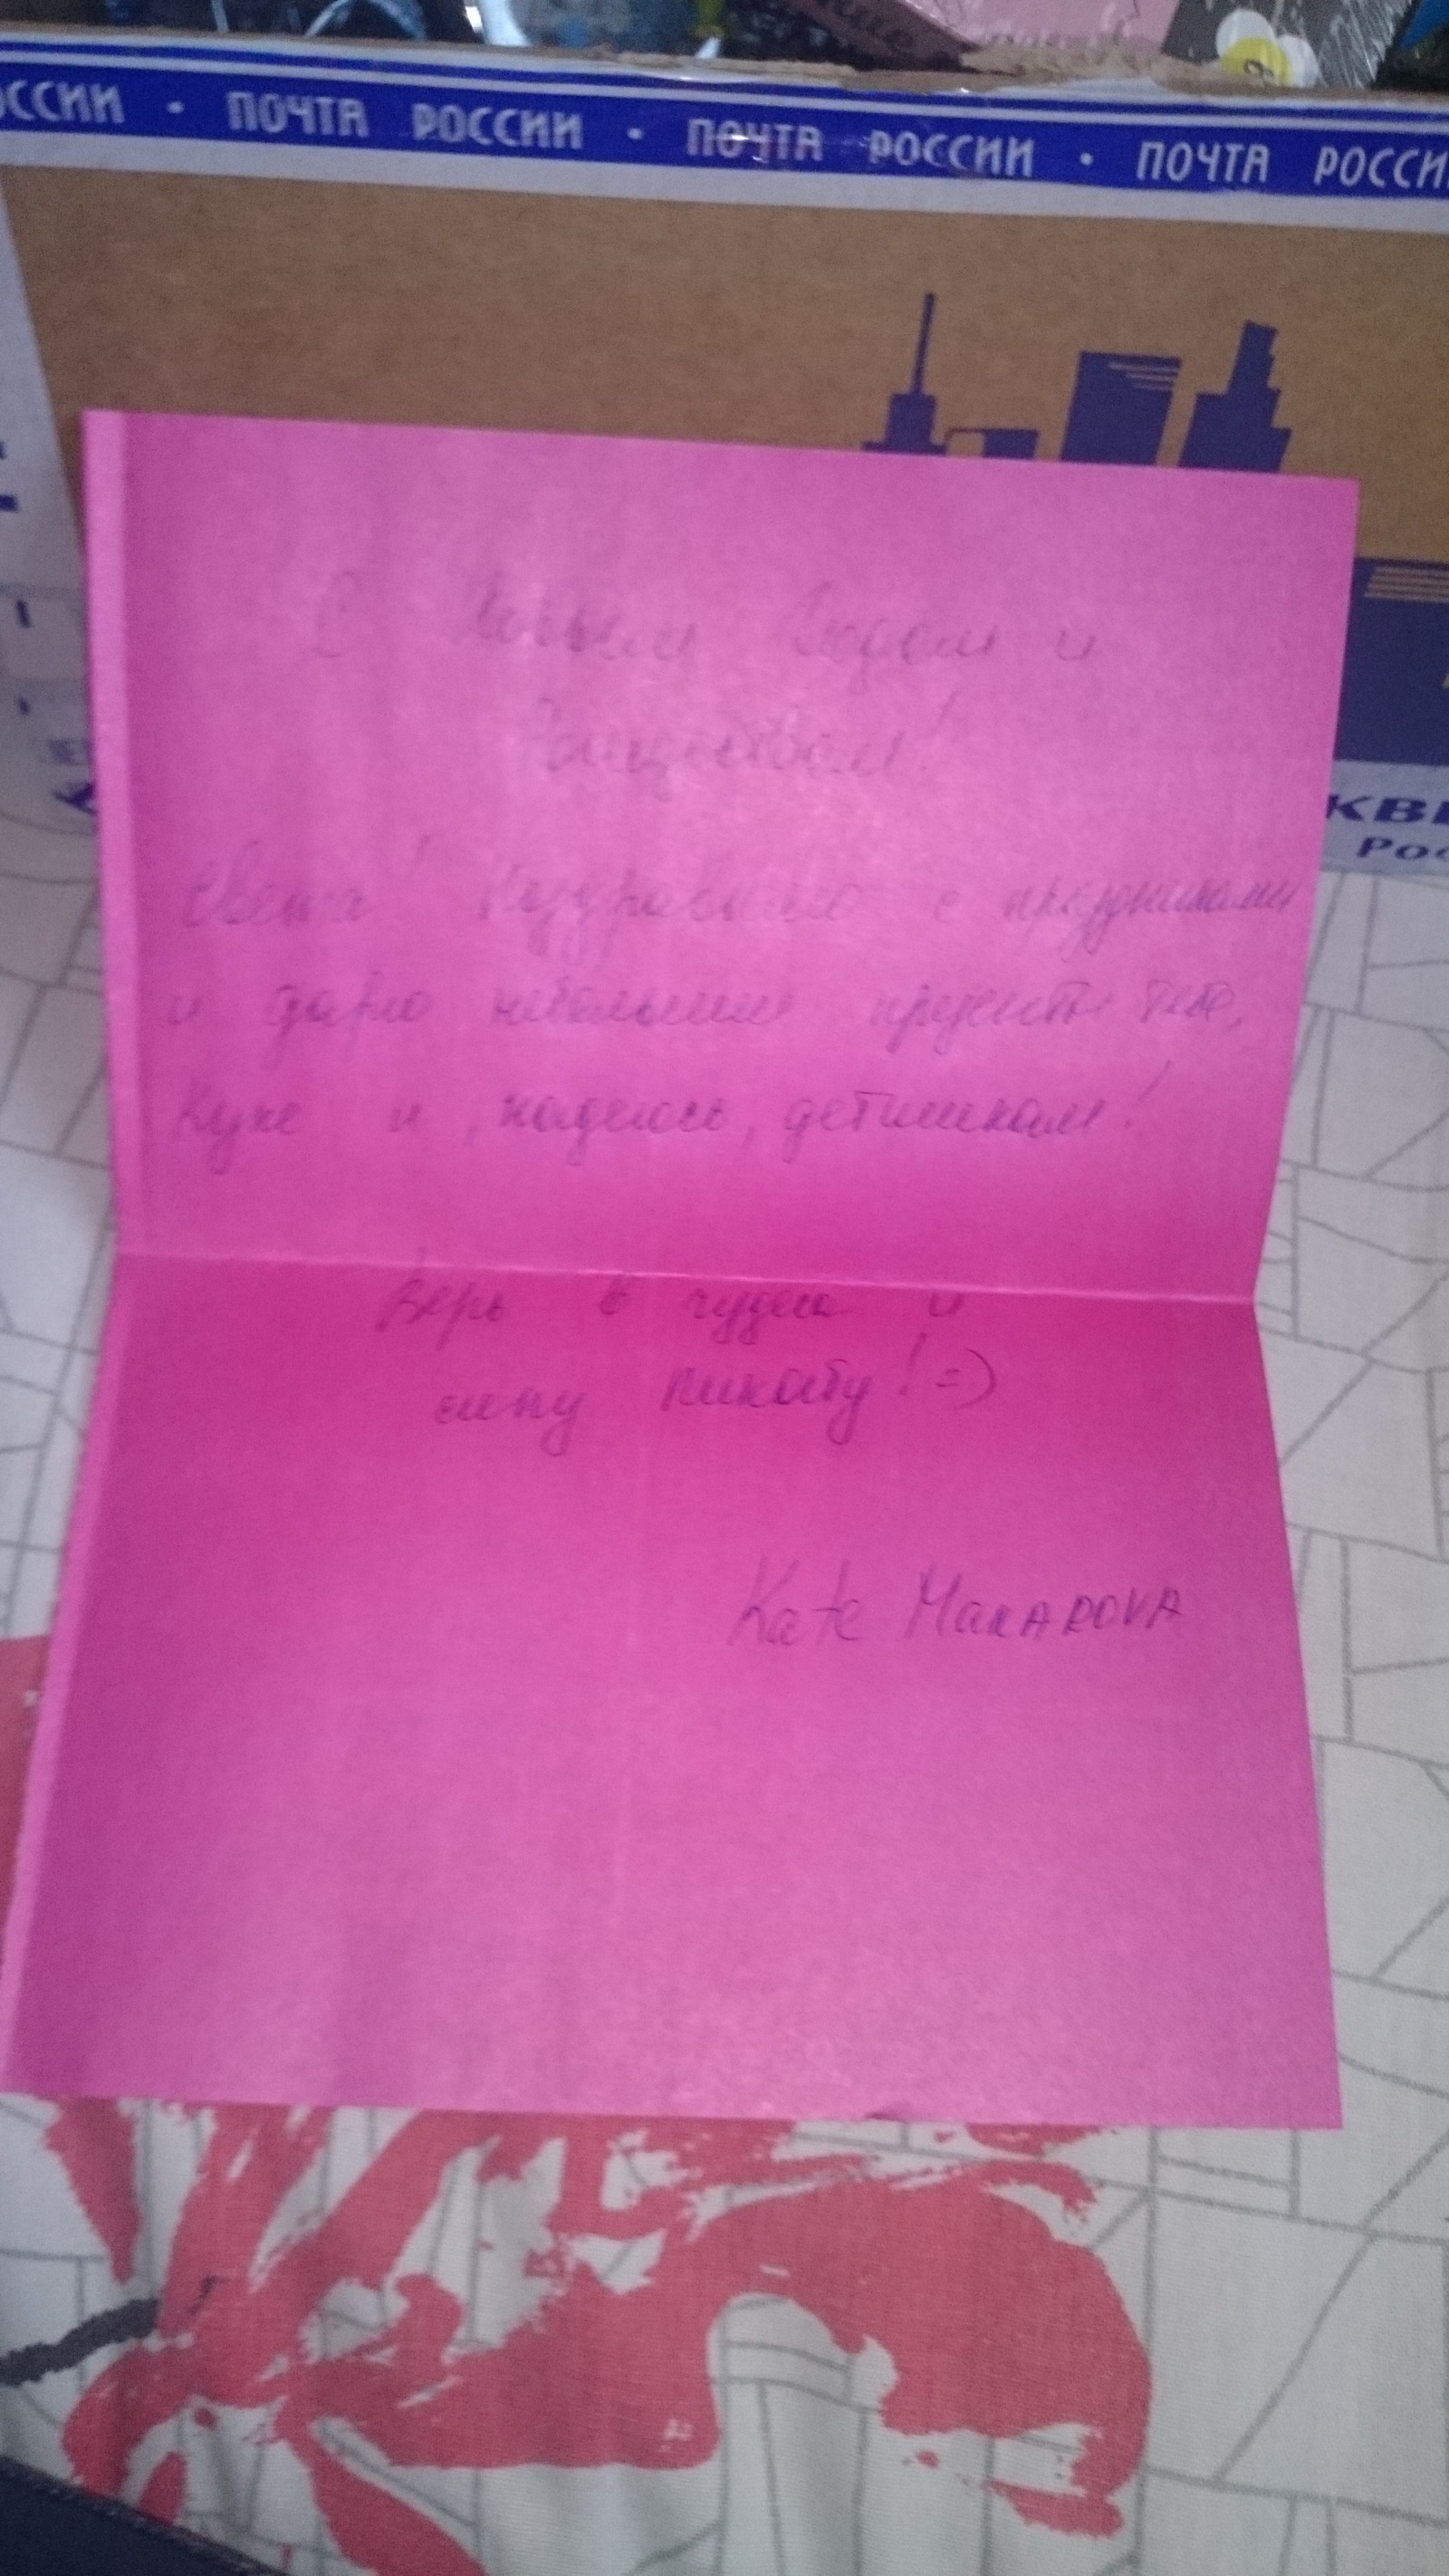 ОССИИ • ПОЧТА РОССИИ • ПОЧТА РОССИИ • ПОЧТА РОССИ
С Новым Годом и
Рождеством!
Света! Поздравляю с праздниками
и дарю небольшие презенты тебе,
Куке и, надеюсь, детишкам!
Верь в чудеса и
силу пикабу! =)
Kate Makarova
КВ
РОС